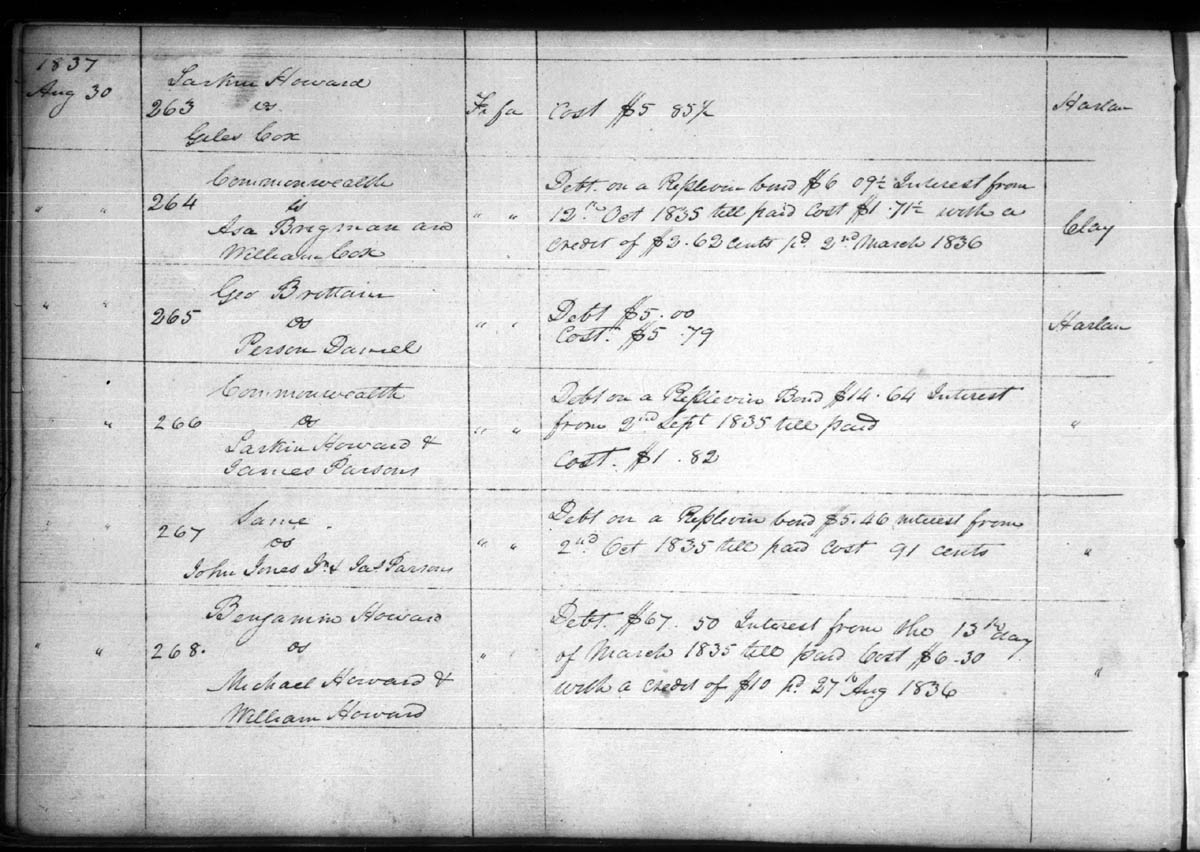 1837
Aug 30
Larkin Howard
263 vs
Giles Cox
Fi fa
Cost $5 85½
Harlan
" "
Commonwealth
264 vs
Asa Brigman and
William Cox
" "
Debt on a Replevin bond $6 09½ Interest from
12th Oct 1835 till paid Cost $1.71½ with a
credit of $2.62 cents pd 2nd March 1836
Clay
" "
Geo Brittain
265 vs
Person Daniel
" "
Debt $5.00
Cost. $5.79
Harlan
" "
Commonwealth
266 vs
Larkin Howard &
James Parsons
" "
Debt on a Replevin Bond $14.64 Interest
from 2nd Sept 1835 till paid
Cost. $1.82
"
" "
Same
267 vs
John Jones Jr & Jas Parsons
" "
Debt on a Replevin bond $5.46 interest from
2nd Oct 1835 till paid Cost 91 cents
"
" "
Benjamin Howard
268. vs
Michael Howard &
William Howard
" "
Debt. $67.50 Interest from the 13th day
of March 1835 till paid Cost $6.30
with a credit of $10 pd 27th Aug 1836
"